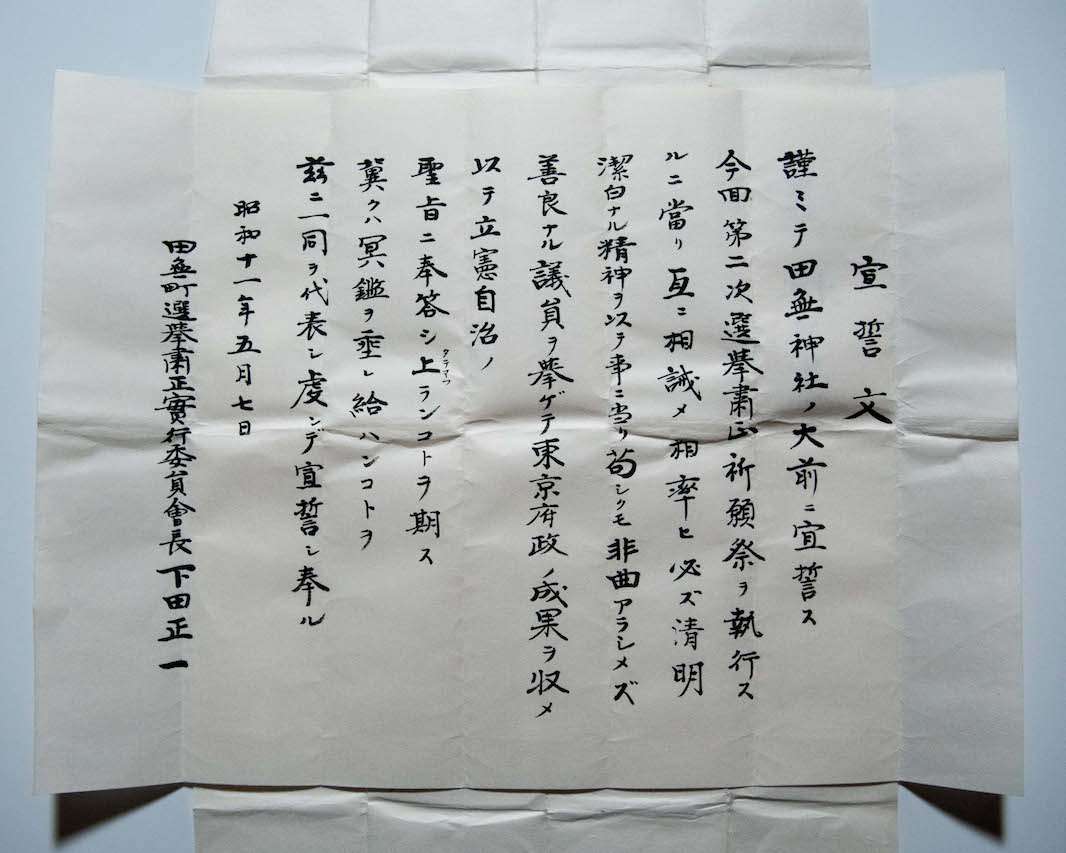 宣誓文
謹ミテ田無神社ノ大前ニ宣誓ス
今回第二次選挙粛正祈願祭ヲ執行ス
ルニ當リ互ニ相誡メ相率ヒ必ズ清明
潔白ナル精神ヲ以テ事ニ当リ苟シクモ非曲アラシメズ
善良ナル議員ヲ挙ゲテ東京府政ノ成果ヲ収メ
以テ立憲自治ノ
聖旨ニ奉答シ上ランコトヲ期ス
タテマツ
冀クハ冥鑑ヲ垂レ給ハンコトヲ
茲ニ一同ヲ代表シ虔ンデ宣誓シ奉ル
昭和十一年五月七日
田無町選挙粛正實行委員會長下田正一